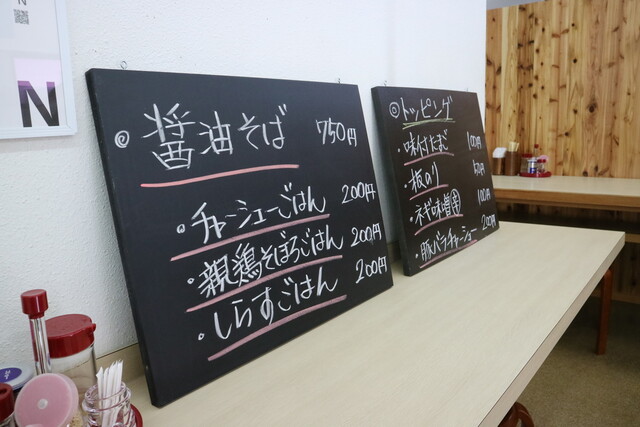 N
N
◎醤油そば 750円
・チャーシューごはん 200円
・親鶏そぼろごはん 200円
・しらすごはん 200円
◎トッピング
・味付たまご 100円
・板のり 50円
・ネギ味増㊍ 100円
・豚バラチャーシュー 200円